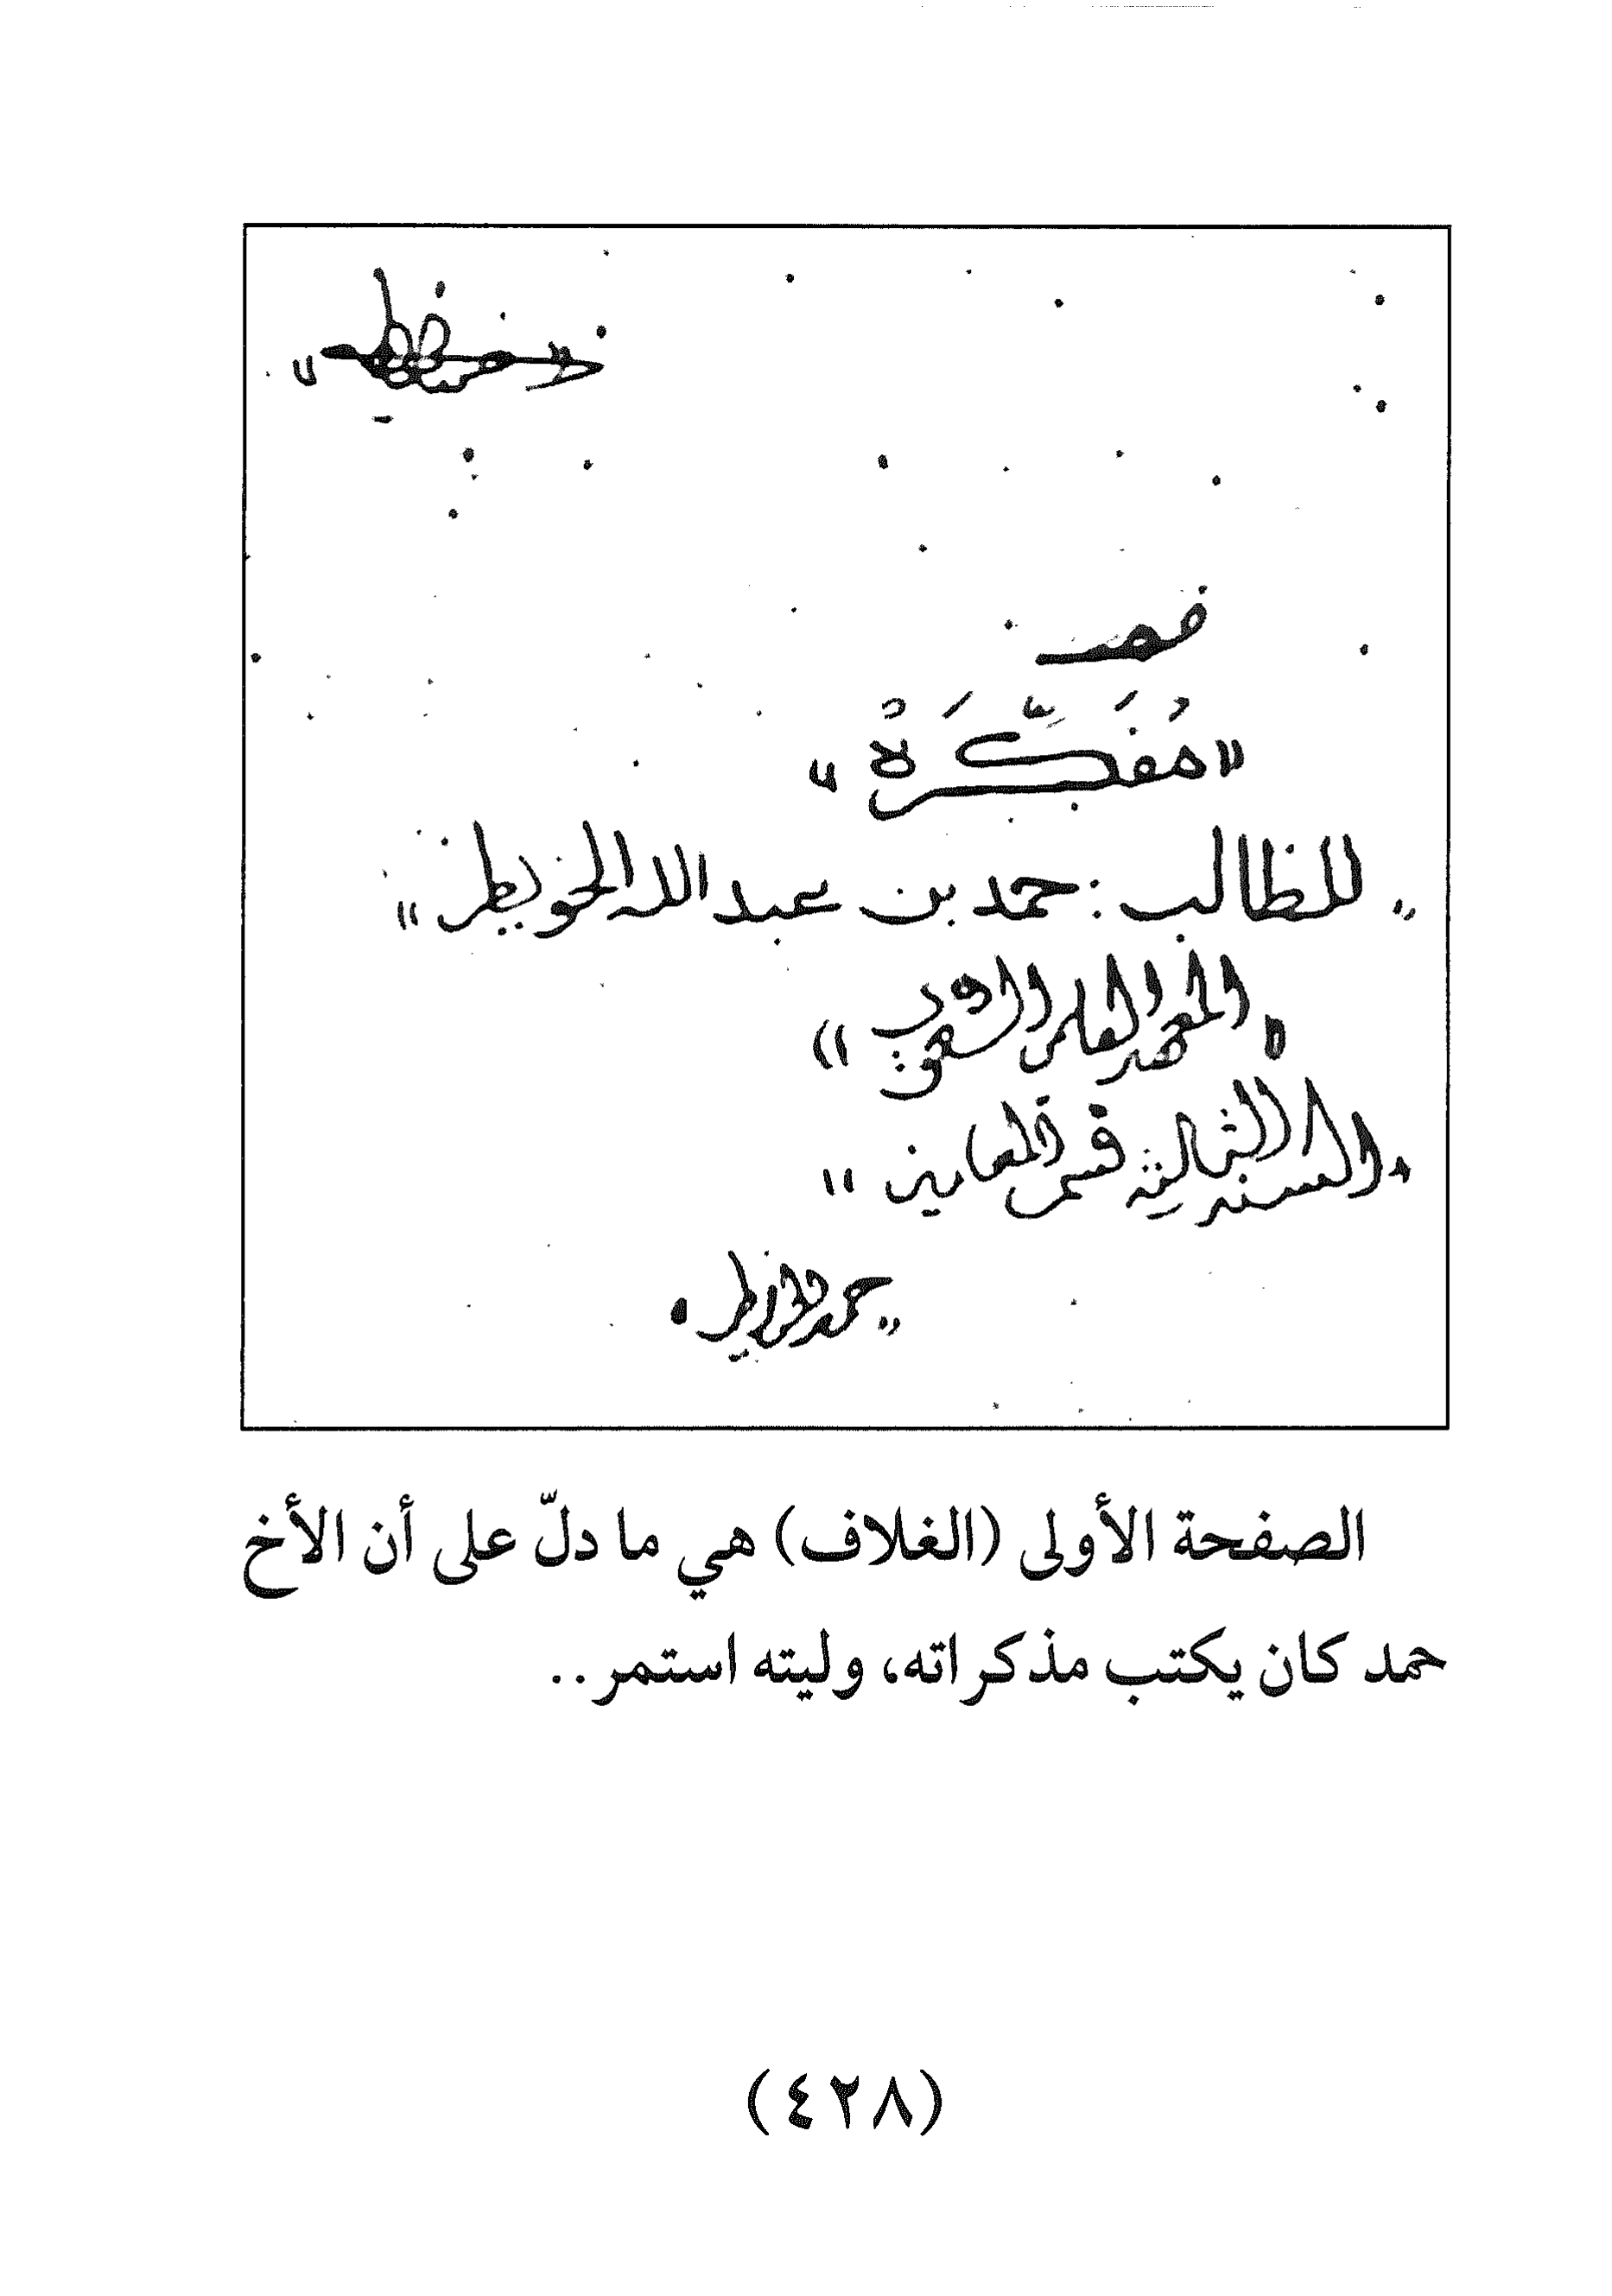 "مُفَكِّرَةْ"
"للطالب: حمد بن عبد الله الخويطر"
المعهد العلمي السعودي
السنة الثالثة قسم المعلمين "
"حمد الخويطر
الصفحة الأولى (الغلاف) هي ما دلّ على أن الأخ
حمد كان يكتب مذكراته، وليته استمر..
(٤٢٨)